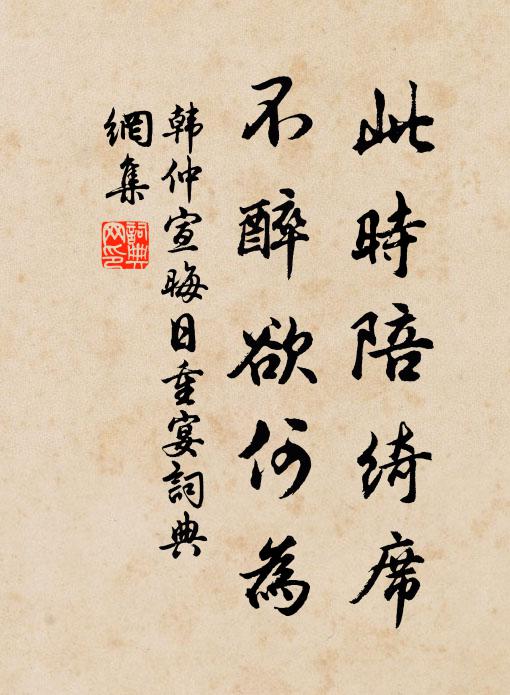 此時陪綺席
不醉欲何為
韩仲宣晦日重宴詞典
網集
詞典
网印